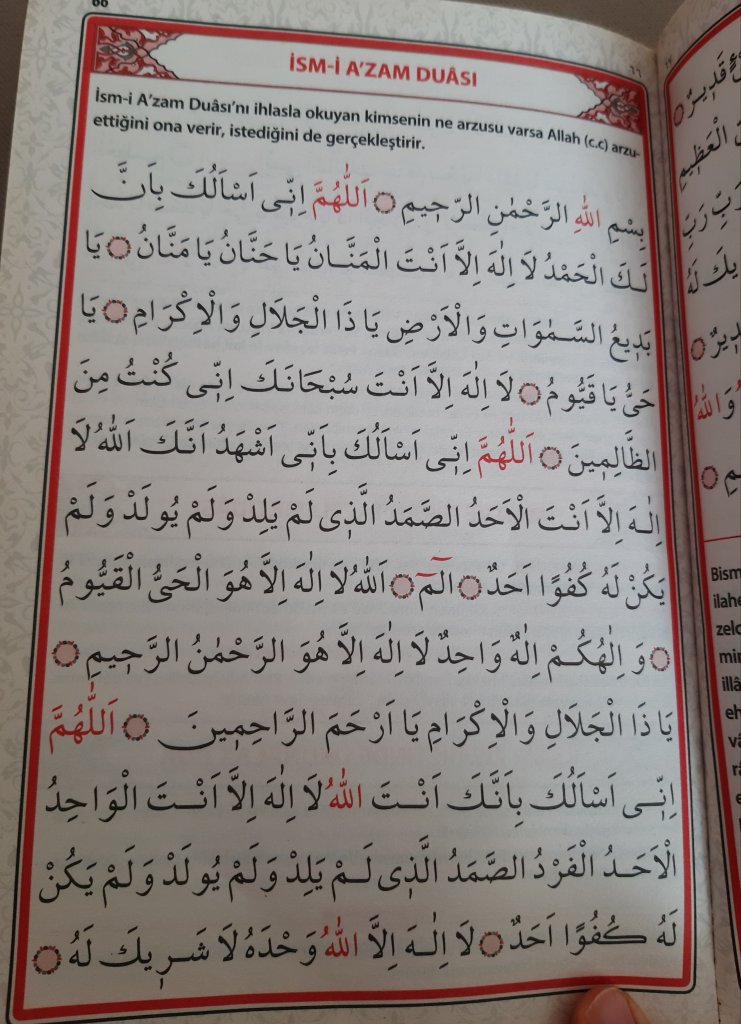 ٦٦
İSM-İ A'ZAM DUÂSI
İsm-i A'zam Duâsı'nı ihlasla okuyan kimsenin ne arzusu varsa Allah (c.c) arzu-
ettiğini ona verir, istediğini de gerçekleştirir.
بِسْمِ اللّٰهِ الرَّحْمٰنِ الرَّحِيمِ ۝ اَللّٰهُمَّ اِنِّى اَسْاَلُكَ بِاَنَّ
لَكَ الْحَمْدُ لَا اِلٰهَ اِلَّا اَنْتَ الْمَنَّانُ يَا حَنَّانُ يَا مَنَّانُ ۝ يَا
بَدِيعُ السَّمٰوَاتِ وَالْاَرْضِ يَا ذَا الْجَلَالِ وَالْاِكْرَامِ ۝ يَا
حَىُّ يَا قَيُّومُ ۝ لَا اِلٰهَ اِلَّا اَنْتَ سُبْحَانَكَ اِنِّى كُنْتُ مِنَ
الظَّالِمِينَ ۝ اَللّٰهُمَّ اِنِّى اَسْاَلُكَ بِاَنِّى اَشْهَدُ اَنَّكَ اَللّٰهُ لَا
اِلٰهَ اِلَّا اَنْتَ الْاَحَدُ الصَّمَدُ الَّذِى لَمْ يَلِدْ وَلَمْ يُولَدْ وَلَمْ
يَكُنْ لَهُ كُفُوًا اَحَدٌ ۝ الٓمٓ ۝ اَللّٰهُ لَا اِلٰهَ اِلَّا هُوَ الْحَىُّ الْقَيُّومُ
۝ وَ اِلٰهُكُمْ اِلٰهٌ وَاحِدٌ لَا اِلٰهَ اِلَّا هُوَ الرَّحْمٰنُ الرَّحِيمِ ۝
يَا ذَا الْجَلَالِ وَالْاِكْرَامِ يَا اَرْحَمَ الرَّاحِمِينَ ۝ اَللّٰهُمَّ
اِنِّى اَسْاَلُكَ بِاَنَّكَ اَنْتَ اللّٰهُ لَا اِلٰهَ اِلَّا اَنْتَ الْوَاحِدُ
الْاَحَدُ الْفَرْدُ الصَّمَدُ الَّذِى لَمْ يَلِدْ وَلَمْ يُولَدْ وَلَمْ يَكُنْ
لَهُ كُفُوًا اَحَدٌ ۝ لَا اِلٰهَ اِلَّا اللّٰهُ وَحْدَهُ لَا شَرِيكَ لَهُ ۝